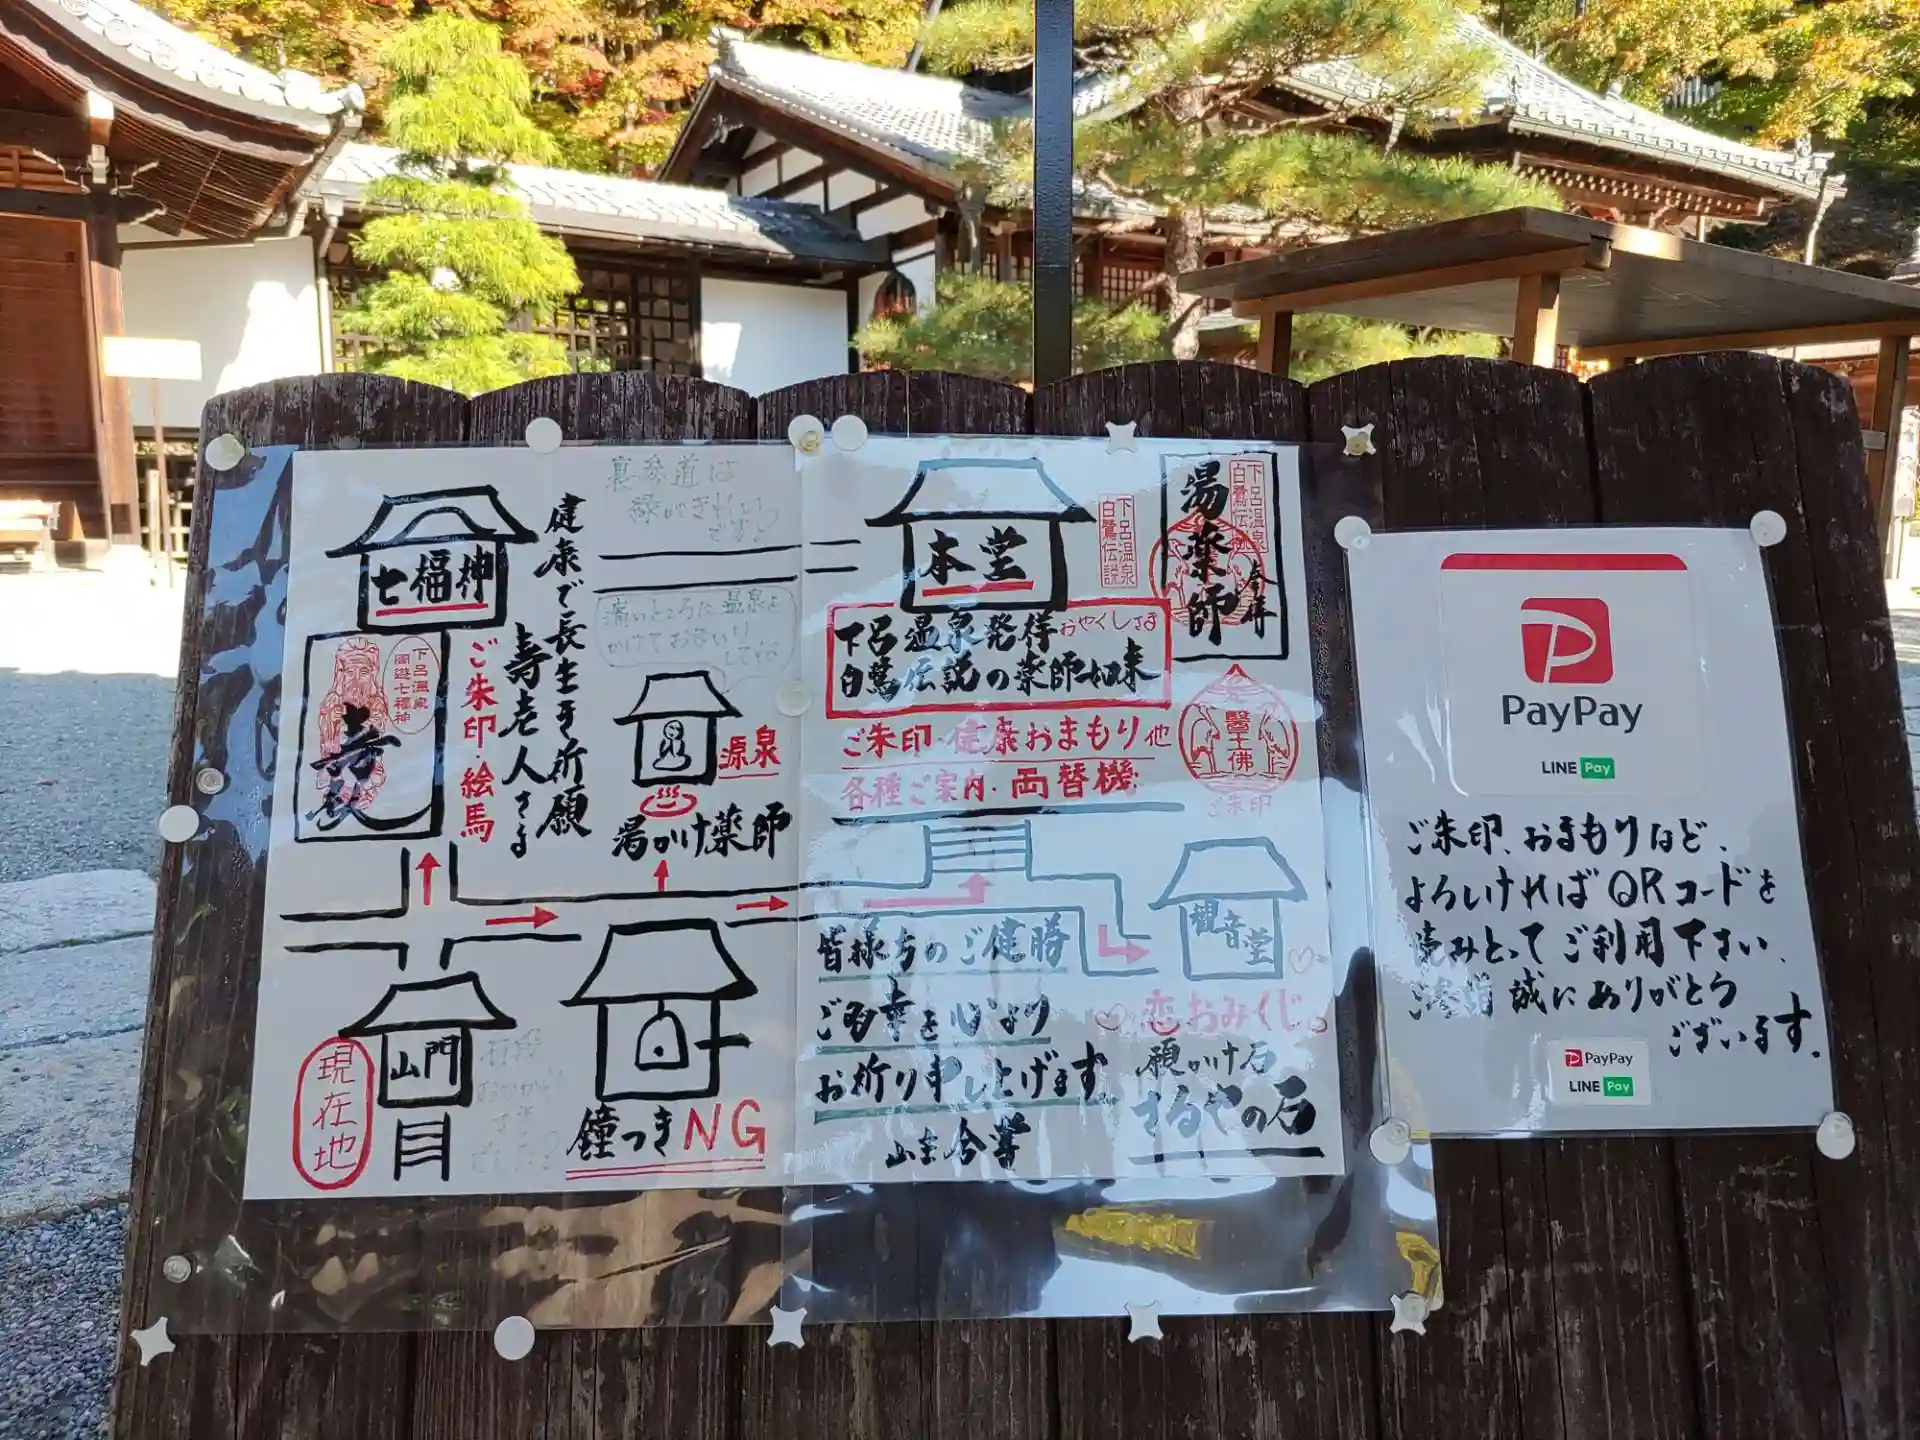 裏参道は
緑がきれい
ですよ
七福神
健康で長生き祈願
寿老人さま
ご朱印・絵馬
下呂温泉
七福神
寿
痛いところに温泉を
かけてお参り
源泉
湯かけ薬師
本堂
下呂温泉
白鷺伝説
下呂温泉発祥 おやくしさま
白鷺伝説の薬師如来
ご朱印・健康おまもり他
各種ご案内・両替機
下呂温泉
白鷺伝
湯薬師
醫王佛
ご朱印
観音堂
恋おみくじ
願かけ石
さるやの石
山門
現在地
鐘つきNG
皆様方のご健勝
ご多幸を心より
お祈り申し上げます
山主 合掌
PayPay
LINE Pay
ご朱印、おまもりなど、
よろしければQRコードを
読みとってご利用下さい、
誠にありがとう
ございます。
PayPay
LINE Pay